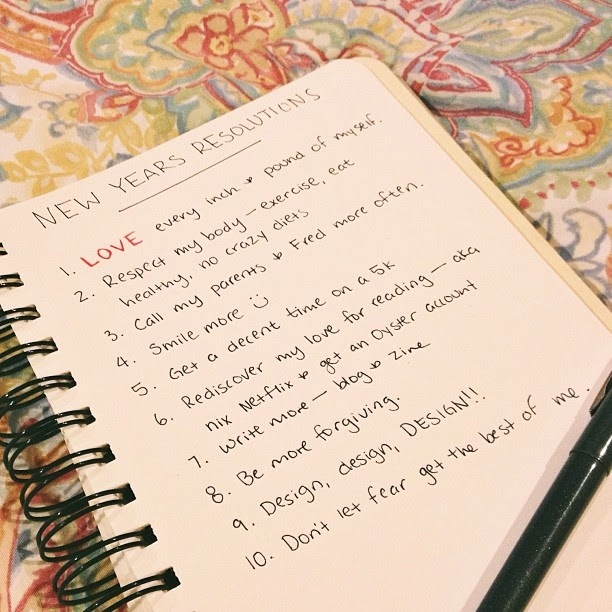 NEW YEARS RESOLUTIONS
1. LOVE every inch & pound of myself.
2. Respect my body — exercise, eat
healthy, no crazy diets
3. Call my parents & Fred more often.
4. Smile more :)
5. Get a decent time on a 5k
6. Rediscover my love for reading — aka
nix Netflix & get an Oyster account
7. Write more — blog & zine
8. Be more forgiving.
9. Design, design, DESIGN!!
10. Don't let fear get the best of me.